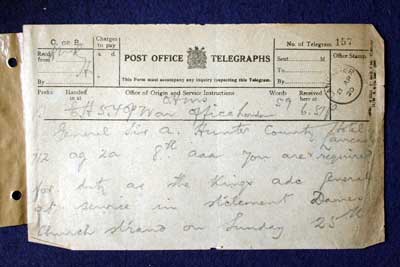 C. or B.
Charges
to pay
s. d.
POST OFFICE TELEGRAPHS
No. of Telegram 157
Recd.
from
By
This Form must accompany any inquiry respecting this Telegram.
Sent
To
By
M
Office Stamp
Prefix
Handed
in at
Office of Origin and Service Instructions
Words
Received
here at
OHMS
5.40 War Office London 59 6.51
General Sir A. Hunter County
712 ag 2a 8th aaa you are required
for duty as the Kings adc general
at service in St Clement Danes
Church Strand on Sunday 25th